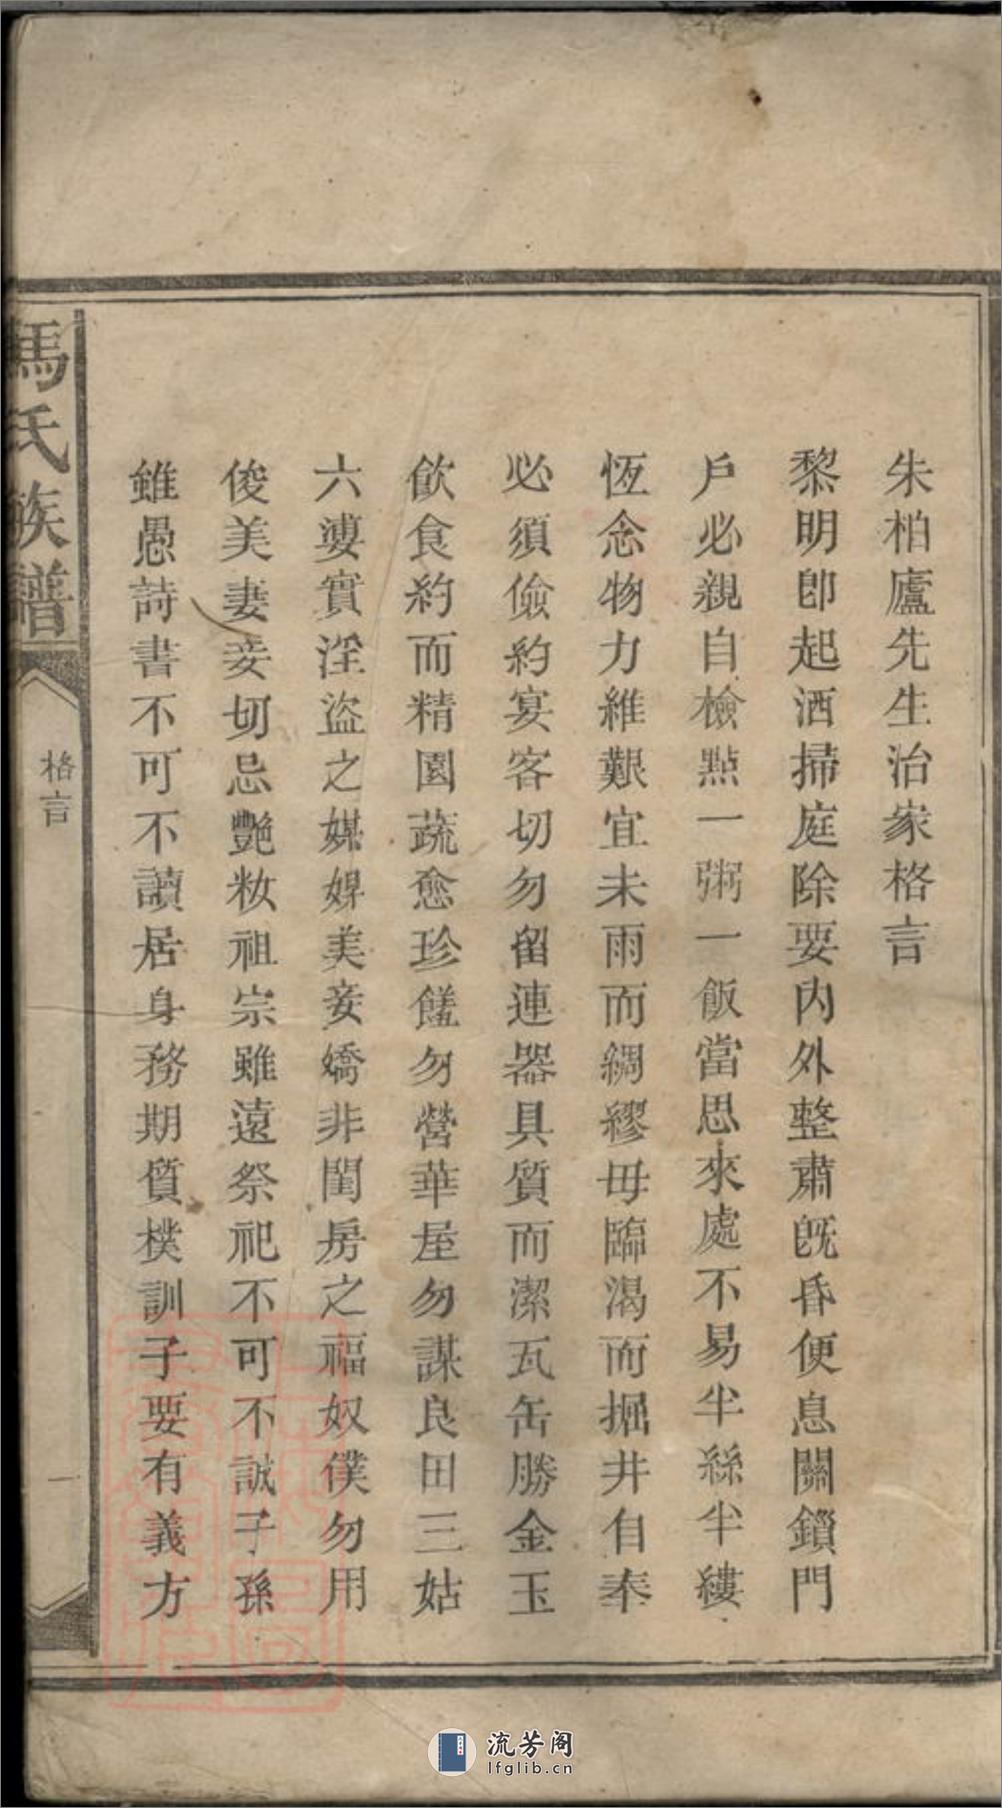 朱柏廬先生治家格言
黎明卽起洒掃庭除要內外整肅旣昏便息關鎖門
戶必親自檢點一粥一飯當思來處不易半絲半縷
恆念物力維艱宜未雨而綢繆毋臨渴而掘井自奉
必須儉約宴客切勿留連器具質而潔瓦缶勝金玉
飲食約而精園蔬愈珍饈勿營華屋勿謀良田三姑
六婆實淫盜之媒婢美妾嬌非閨房之福奴僕勿用
俊美妻妾切忌艷妝祖宗雖遠祭祀不可不誠子孫
雖愚詩書不可不讀居身務期質樸訓子要有義方
馬氏族譜
格言
一
流芳阁
lfglib.cn